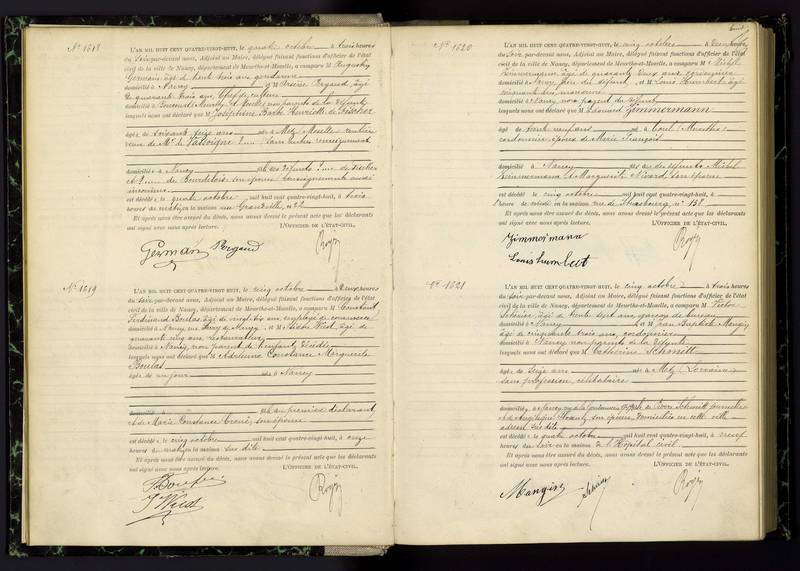 N° 1618
L'AN MIL HUIT CENT QUATRE-VINGT-HUIT, le quatre octobre à trois heures
du soir par-devant nous, Adjoint au Maire, délégué faisant fonctions d'officier de l'état
civil de la ville de Nancy, département de Meurthe-et-Moselle, a comparu M Augustin
Germain, âgé de trente trois ans, gendarme
domicilié à Nancy et M Pergaud, âgé
de quarante trois ans,
domicilié à non parents de la défunte
lesquels nous ont déclaré que M Joséphine Barbe Henriette de Fischer
âgée de soixante seize ans née à Metz Moselle rentière
veuve de Mr de Vassoigne sans autres renseignements
domiciliée à Nancy fille des défunts de Fischer
et de son épouse renseignements
inconnus
est décédée le quatre octobre mil huit cent quatre-vingt-huit, à trois
heures du matin en la maison rue Grandville, n°
Et après nous être assuré du décès, nous avons dressé le présent acte que les déclarants
ont signé avec nous après lecture. L'OFFICIER DE L'ÉTAT-CIVIL.
Germain Pergaud
N° 1619
L'AN MIL HUIT CENT QUATRE-VINGT-HUIT, le cinq octobre à deux heures
du soir par-devant nous, Adjoint au Maire, délégué faisant fonctions d'officier de l'état
civil de la ville de Nancy, département de Meurthe-et-Moselle, a comparu M Constant
Ferdinand Boulas âgé de vingt six ans, employé de commerce
domicilié à Nancy, et M West, âgé de
quarante cinq ans, restaurateur
domicilié à Nancy, non parent de l'enfant décédée
lesquels nous ont déclaré que M Adrienne Constance Marguerite
Boulas
âgée de un jour née à Nancy
domiciliée à fille du premier déclarant
et de Marie Constance son épouse
est décédée le cinq octobre mil huit cent quatre-vingt-huit, à onze
heures du matin en la maison sus dite
Et après nous être assuré du décès, nous avons dressé le présent acte que les déclarants
ont signé avec nous après lecture. L'OFFICIER DE L'ÉTAT-CIVIL.
West
N° 1620
L'AN MIL HUIT CENT QUATRE-VINGT-HUIT, le cinq octobre à deux heures
du soir par-devant nous, Adjoint au Maire, délégué faisant fonctions d'officier de l'état
civil de la ville de Nancy, département de Meurthe-et-Moselle, a comparu M Michel
Zimmermann, âgé de quarante deux ans, cordonnier
domicilié à Nancy, frère du défunt et M Louis Humbert âgé
cinquante
domicilié à Nancy non parent du défunt
lesquels nous ont déclaré que M Edouard Zimmermann
âgé de trente neuf ans né à Toul (Meurthe)
cordonnier époux de Marie François
domicilié à Nancy fils des défunts Michel
Zimmermann et Marguerite son épouse
est décédé le cinq octobre mil huit cent quatre-vingt-huit, à
heure du en la maison rue de Strasbourg, n° 138
Et après nous être assuré du décès, nous avons dressé le présent acte que les déclarants
ont signé avec nous après lecture. L'OFFICIER DE L'ÉTAT-CIVIL.
Zimmermann
Louis humbert
N° 1621
L'AN MIL HUIT CENT QUATRE-VINGT-HUIT, le cinq octobre à trois heures
du soir par-devant nous, Adjoint au Maire, délégué faisant fonctions d'officier de l'état
civil de la ville de Nancy, département de Meurthe-et-Moselle, a comparu M Victor
âgé de trente sept ans garçon de bureau
domicilié à Nancy et M Jean Baptiste Mangin
âgé de cinquante trois ans, cordonnier
domicilié à Nancy non parents de la défunte
lesquels nous ont déclaré que M Catherine Schmitt
âgée de seize ans née à Metz (Lorraine)
sans profession, célibataire
domiciliée à Nancy fille de Schmitt
et de Angélique son épouse, domiciliés en cette ville
adresse sus dite
est décédée le quatre octobre mil huit cent quatre-vingt-huit, à neuf
heures du soir en la maison de l'Hôpital civil
Et après nous être assuré du décès, nous avons dressé le présent acte que les déclarants
ont signé avec nous après lecture. L'OFFICIER DE L'ÉTAT-CIVIL.
Mangin